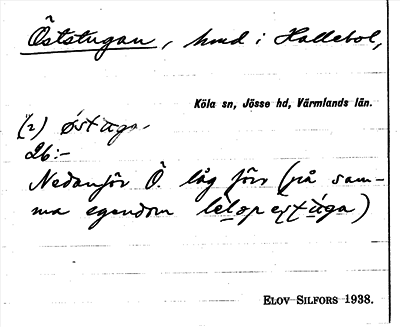 Öststugan, hmd i Hallebol,
Köla sn, Jösse hd, Värmlands län.
(2) østaga.
26:-
Nedanför Ö. låg förr (på sam-
ma egendom
ELOV SILFORS 1938.